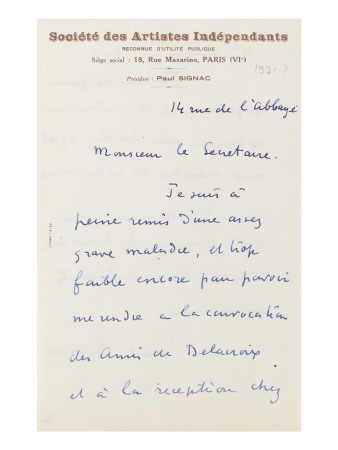 Société des Artistes Indépendants
RECONNUE D'UTILITÉ PUBLIQUE
Siège social : 18, Rue Mazarine, PARIS (VIe)
Président : Paul SIGNAC
1931 ?
14 rue de l'Abbaye
Monsieur le Secretaire.
Je suis à
peine remis d'une assez
grave maladie, et trop
faible encore pour pouvoir
me rendre a la convocation
des Amis de Delacroix
et à la reception chez